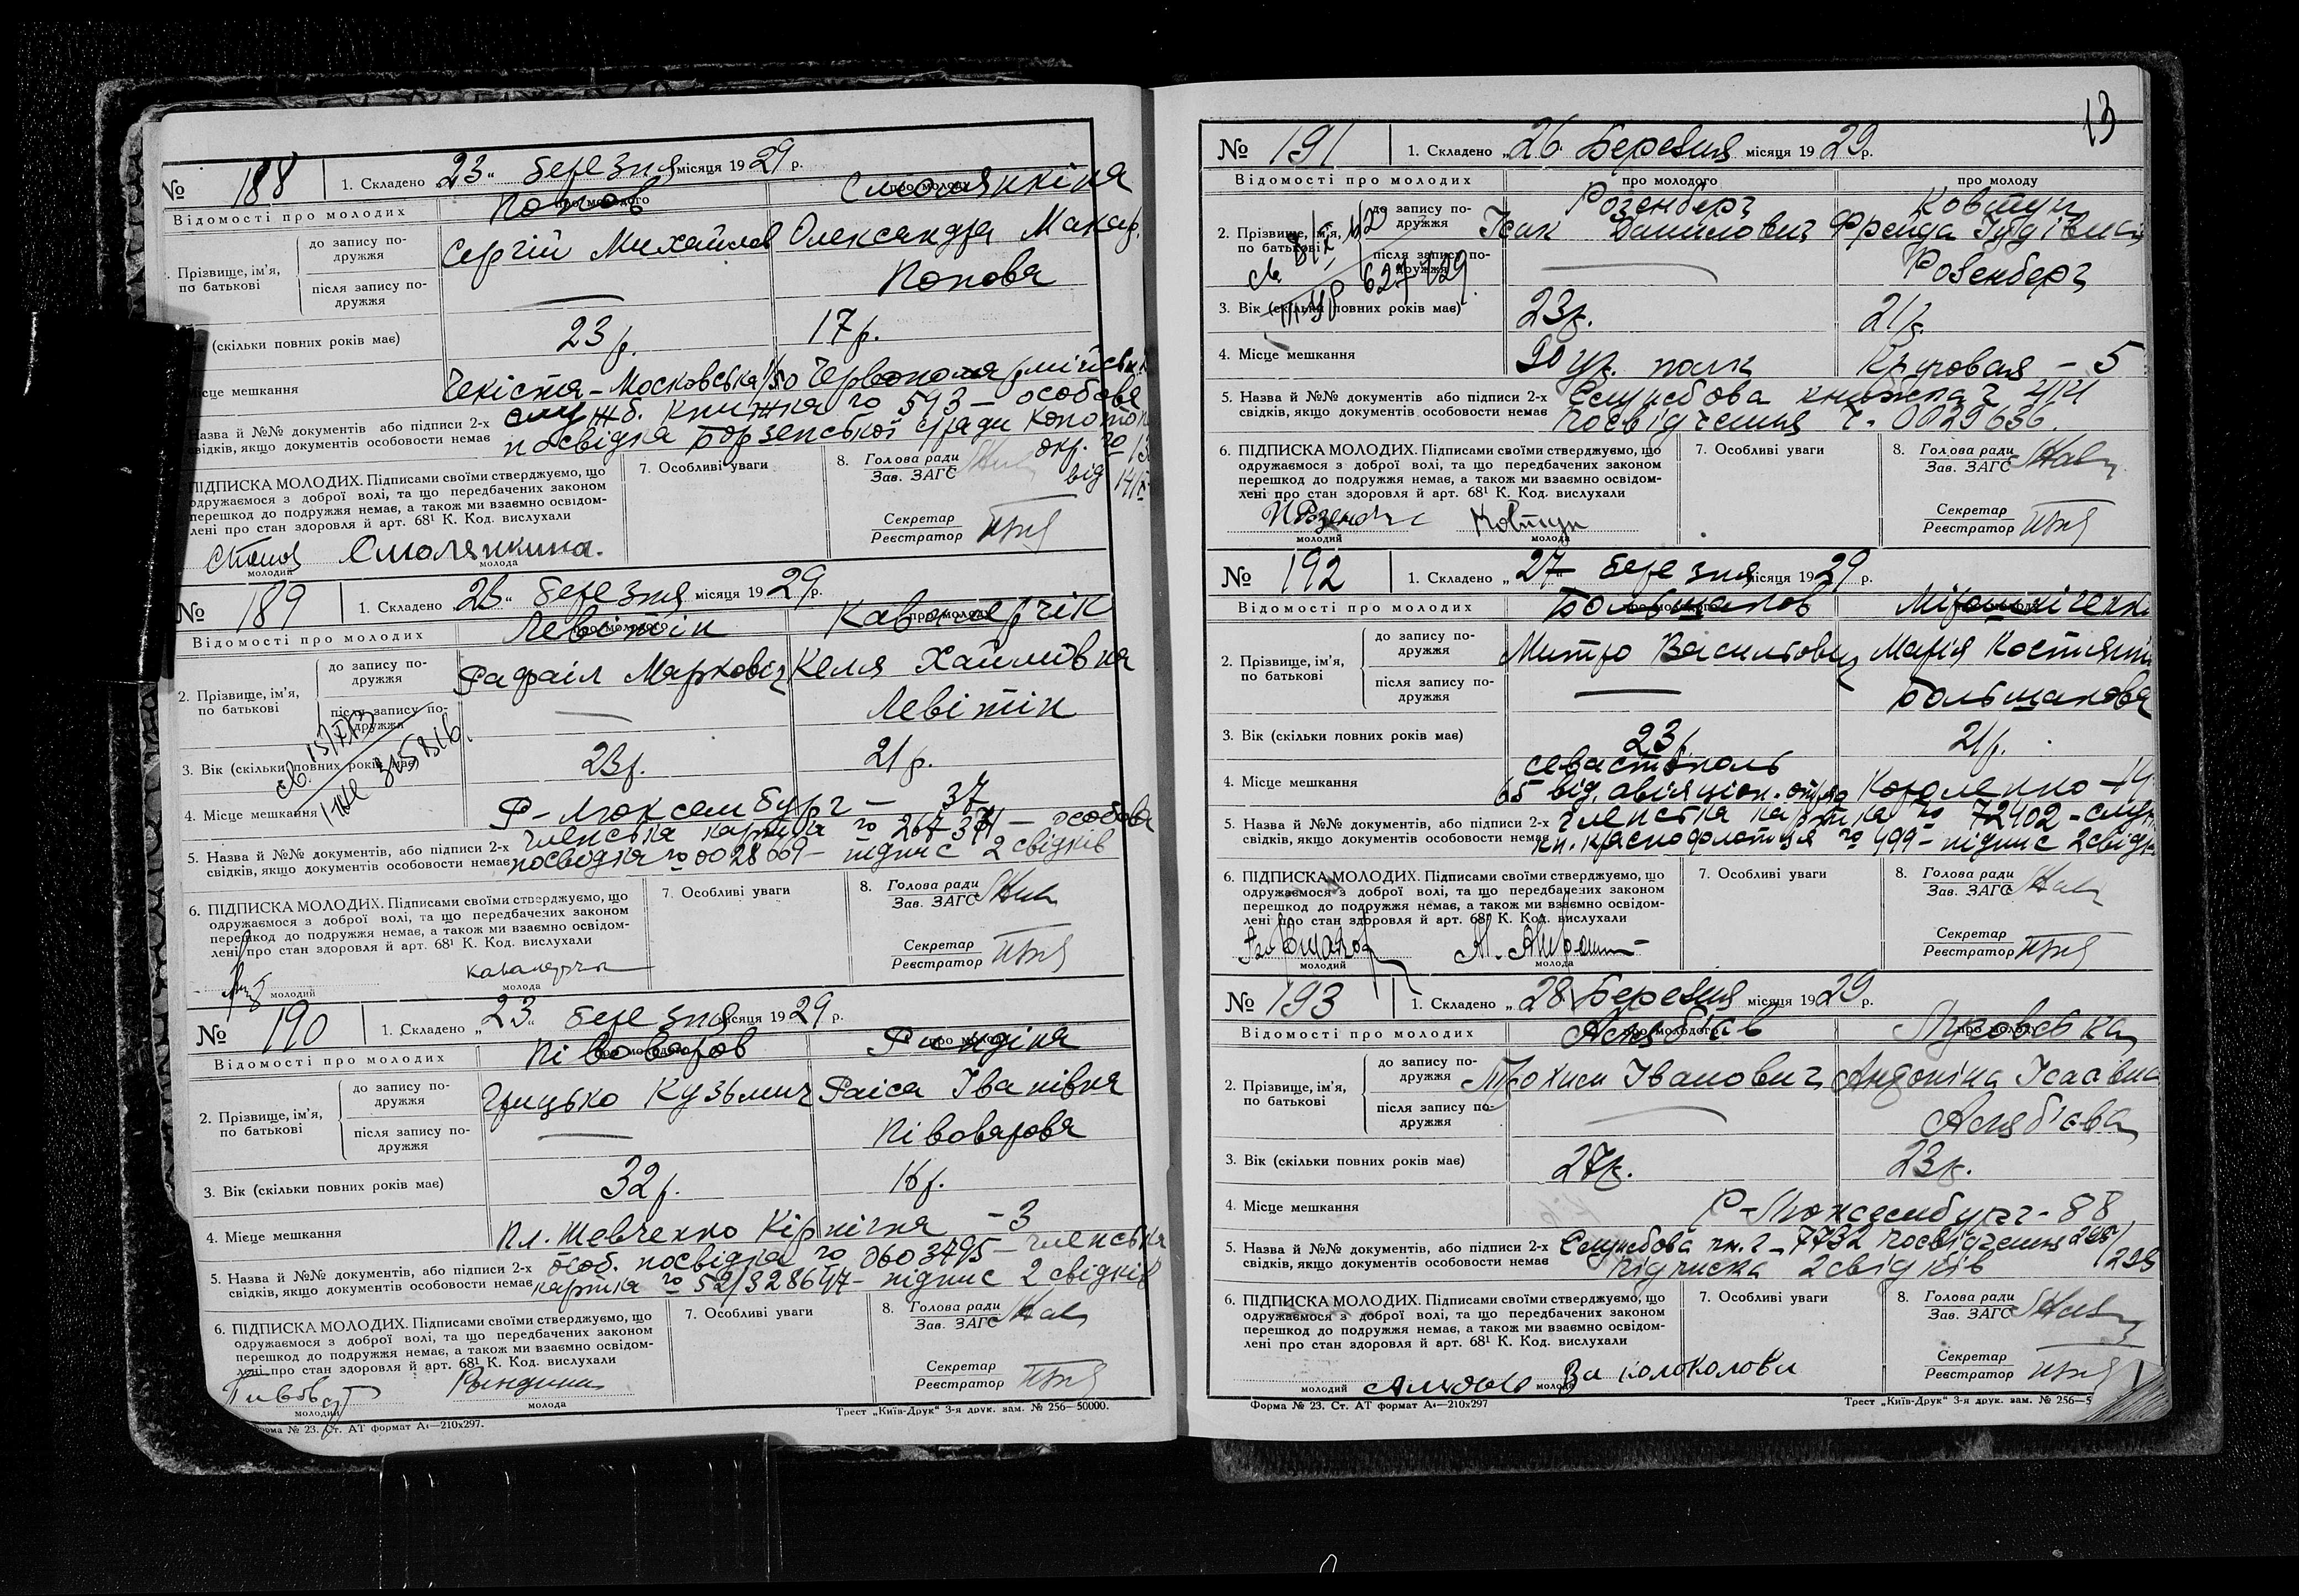 № 188 1. Складено „23“ березня місяця 1929 р.
Відомості про молодих про молодого про молоду
Попов Смолянкіна
Прізвище, ім'я, по батькові
до запису подружжя Сергій Михайлов Олександра Макар.
після запису подружжя — Попова
(скільки повних років має) 23 р. 17 р.
місце мешкання Чекістя - Московська
Назва й №№ документів або підписи 2-х служб. книжка ч 593 - особова
свідків, якщо документів особовости немає посвідка Борзенської ради Конотоп
окр. ч 13
від
ПІДПИСКА МОЛОДИХ. Підписами своїми стверджуємо, що
одружаємося з доброї волі, та що передбачених законом
перешкод до подружжя немає, а також ми взаємно освідом-
лені про стан здоровля й арт. 68¹ К. Код. вислухали
Смолянкина.
молодий молода
7. Особливі уваги
8. Голова ради
Зав. ЗАГС
Секретар
Реєстратор
№ 189 1. Складено „23“ березня місяця 1929 р.
Відомості про молодих про молодого про молоду
Левітін Кавалерчік
2. Прізвище, ім'я, по батькові
до запису подружжя Рафаіл Маркович Келя Хаимівна
після запису подружжя — Левітін
3. Вік (скільки повних років має) 23 р. 21 р.
4. Місце мешкання Р-Люксембург - 37
5. Назва й №№ документів, або підписи 2-х членська картка ч 267371 - особова
свідків, якщо документів особовости немає посвідка ч 0028069 - підпис 2 свідків
6. ПІДПИСКА МОЛОДИХ. Підписами своїми стверджуємо, що
одружаємося з доброї волі, та що передбачених законом
перешкод до подружжя немає, а також ми взаємно освідом-
лені про стан здоровля й арт. 68¹ К. Код. вислухали
молодий молода
7. Особливі уваги
8. Голова ради
Зав. ЗАГС
Секретар
Реєстратор
№ 190 1. Складено „23“ березня місяця 1929 р.
Відомості про молодих про молодого про молоду
Півоваров Риндіна
2. Прізвище, ім'я, по батькові
до запису подружжя Грицько Кузьмич Раіса Іванівна
після запису подружжя — Півоварова
3. Вік (скільки повних років має) 32 р. 18 р.
4. Місце мешкання Пл. Шевченко Кірпічня - 3
5. Назва й №№ документів, або підписи 2-х особ. посвідка ч 0603495 - членська
свідків, якщо документів особовости немає картка ч 52/328647 - підпис 2 свідків
6. ПІДПИСКА МОЛОДИХ. Підписами своїми стверджуємо, що
одружаємося з доброї волі, та що передбачених законом
перешкод до подружжя немає, а також ми взаємно освідом-
лені про стан здоровля й арт. 68¹ К. Код. вислухали
Рындина
молодий молода
7. Особливі уваги
8. Голова ради
Зав. ЗАГС
Секретар
Реєстратор
Форма № 23. Ст. АТ формат А4—210x297. Трест „Київ-Друк“ 3-я друк. зам. № 256—50000.
13
№ 191 1. Складено „26 Березня місяця 1929 р.
Відомості про молодих про молодого про молоду
Розенберг Ковтун
2. Прізвище, ім'я, по батькові
до запису подружжя Ісак Данилович Фрейда Іудівна
після запису подружжя — Розенберг
3. Вік (скільки повних років має) 23 р. 21 р.
4. Місце мешкання полк Кручовая - 5
5. Назва й №№ документів або підписи 2-х Службова книжка ч
свідків, якщо документів особовости немає Посвідчення ч. 0029636.
6. ПІДПИСКА МОЛОДИХ. Підписами своїми стверджуємо, що
одружаємося з доброї волі, та що передбачених законом
перешкод до подружжя немає, а також ми взаємно освідом-
лені про стан здоровля й арт. 68¹ К. Код. вислухали
Ковтун
молодий молода
7. Особливі уваги
8. Голова ради
Зав. ЗАГС
Секретар
Реєстратор
№ 192 1. Складено „27 березня місяця 1929 р.
Відомості про молодих про молодого про молоду
Большаков Мірошніченко
2. Прізвище, ім'я, по батькові
до запису подружжя Митро Васильович Марія Костянти
після запису подружжя — Большакова
3. Вік (скільки повних років має) 23 р. 21 р.
4. Місце мешкання Севастополь
65 від. авіяціон. отряд Короленко - 14
5. Назва й №№ документів, або підписи 2-х членська картка ч 72402 - служ
свідків, якщо документів особовости немає кн. краснофлотця ч 499 - підпис 2 свідк
6. ПІДПИСКА МОЛОДИХ. Підписами своїми стверджуємо, що
одружаємося з доброї волі, та що передбачених законом
перешкод до подружжя немає, а також ми взаємно освідом-
лені про стан здоровля й арт. 68¹ К. Код. вислухали
молодий молода
7. Особливі уваги
8. Голова ради
Зав. ЗАГС
Секретар
Реєстратор
№ 193 1. Складено „28 Березня місяця 1929 р.
Відомості про молодих про молодого про молоду
2. Прізвище, ім'я, по батькові
до запису подружжя Трохим Іванович Андоніна Ісаівна
після запису подружжя — Аляб'єва
3. Вік (скільки повних років має) 27 р. 23 р.
4. Місце мешкання Р-Люксембург - 88
5. Назва й №№ документів, або підписи 2-х Службова кн. ч - 7732 посвідчення
свідків, якщо документів особовости немає підписка 2 свідків
6. ПІДПИСКА МОЛОДИХ. Підписами своїми стверджуємо, що
одружаємося з доброї волі, та що передбачених законом
перешкод до подружжя немає, а також ми взаємно освідом-
лені про стан здоровля й арт. 68¹ К. Код. вислухали
молодий молода
7. Особливі уваги
8. Голова ради
Зав. ЗАГС
Секретар
Реєстратор
Форма № 23. Ст. АТ формат А4—210x297 Трест „Київ-Друк“ 3-я друк. зам. № 256—5